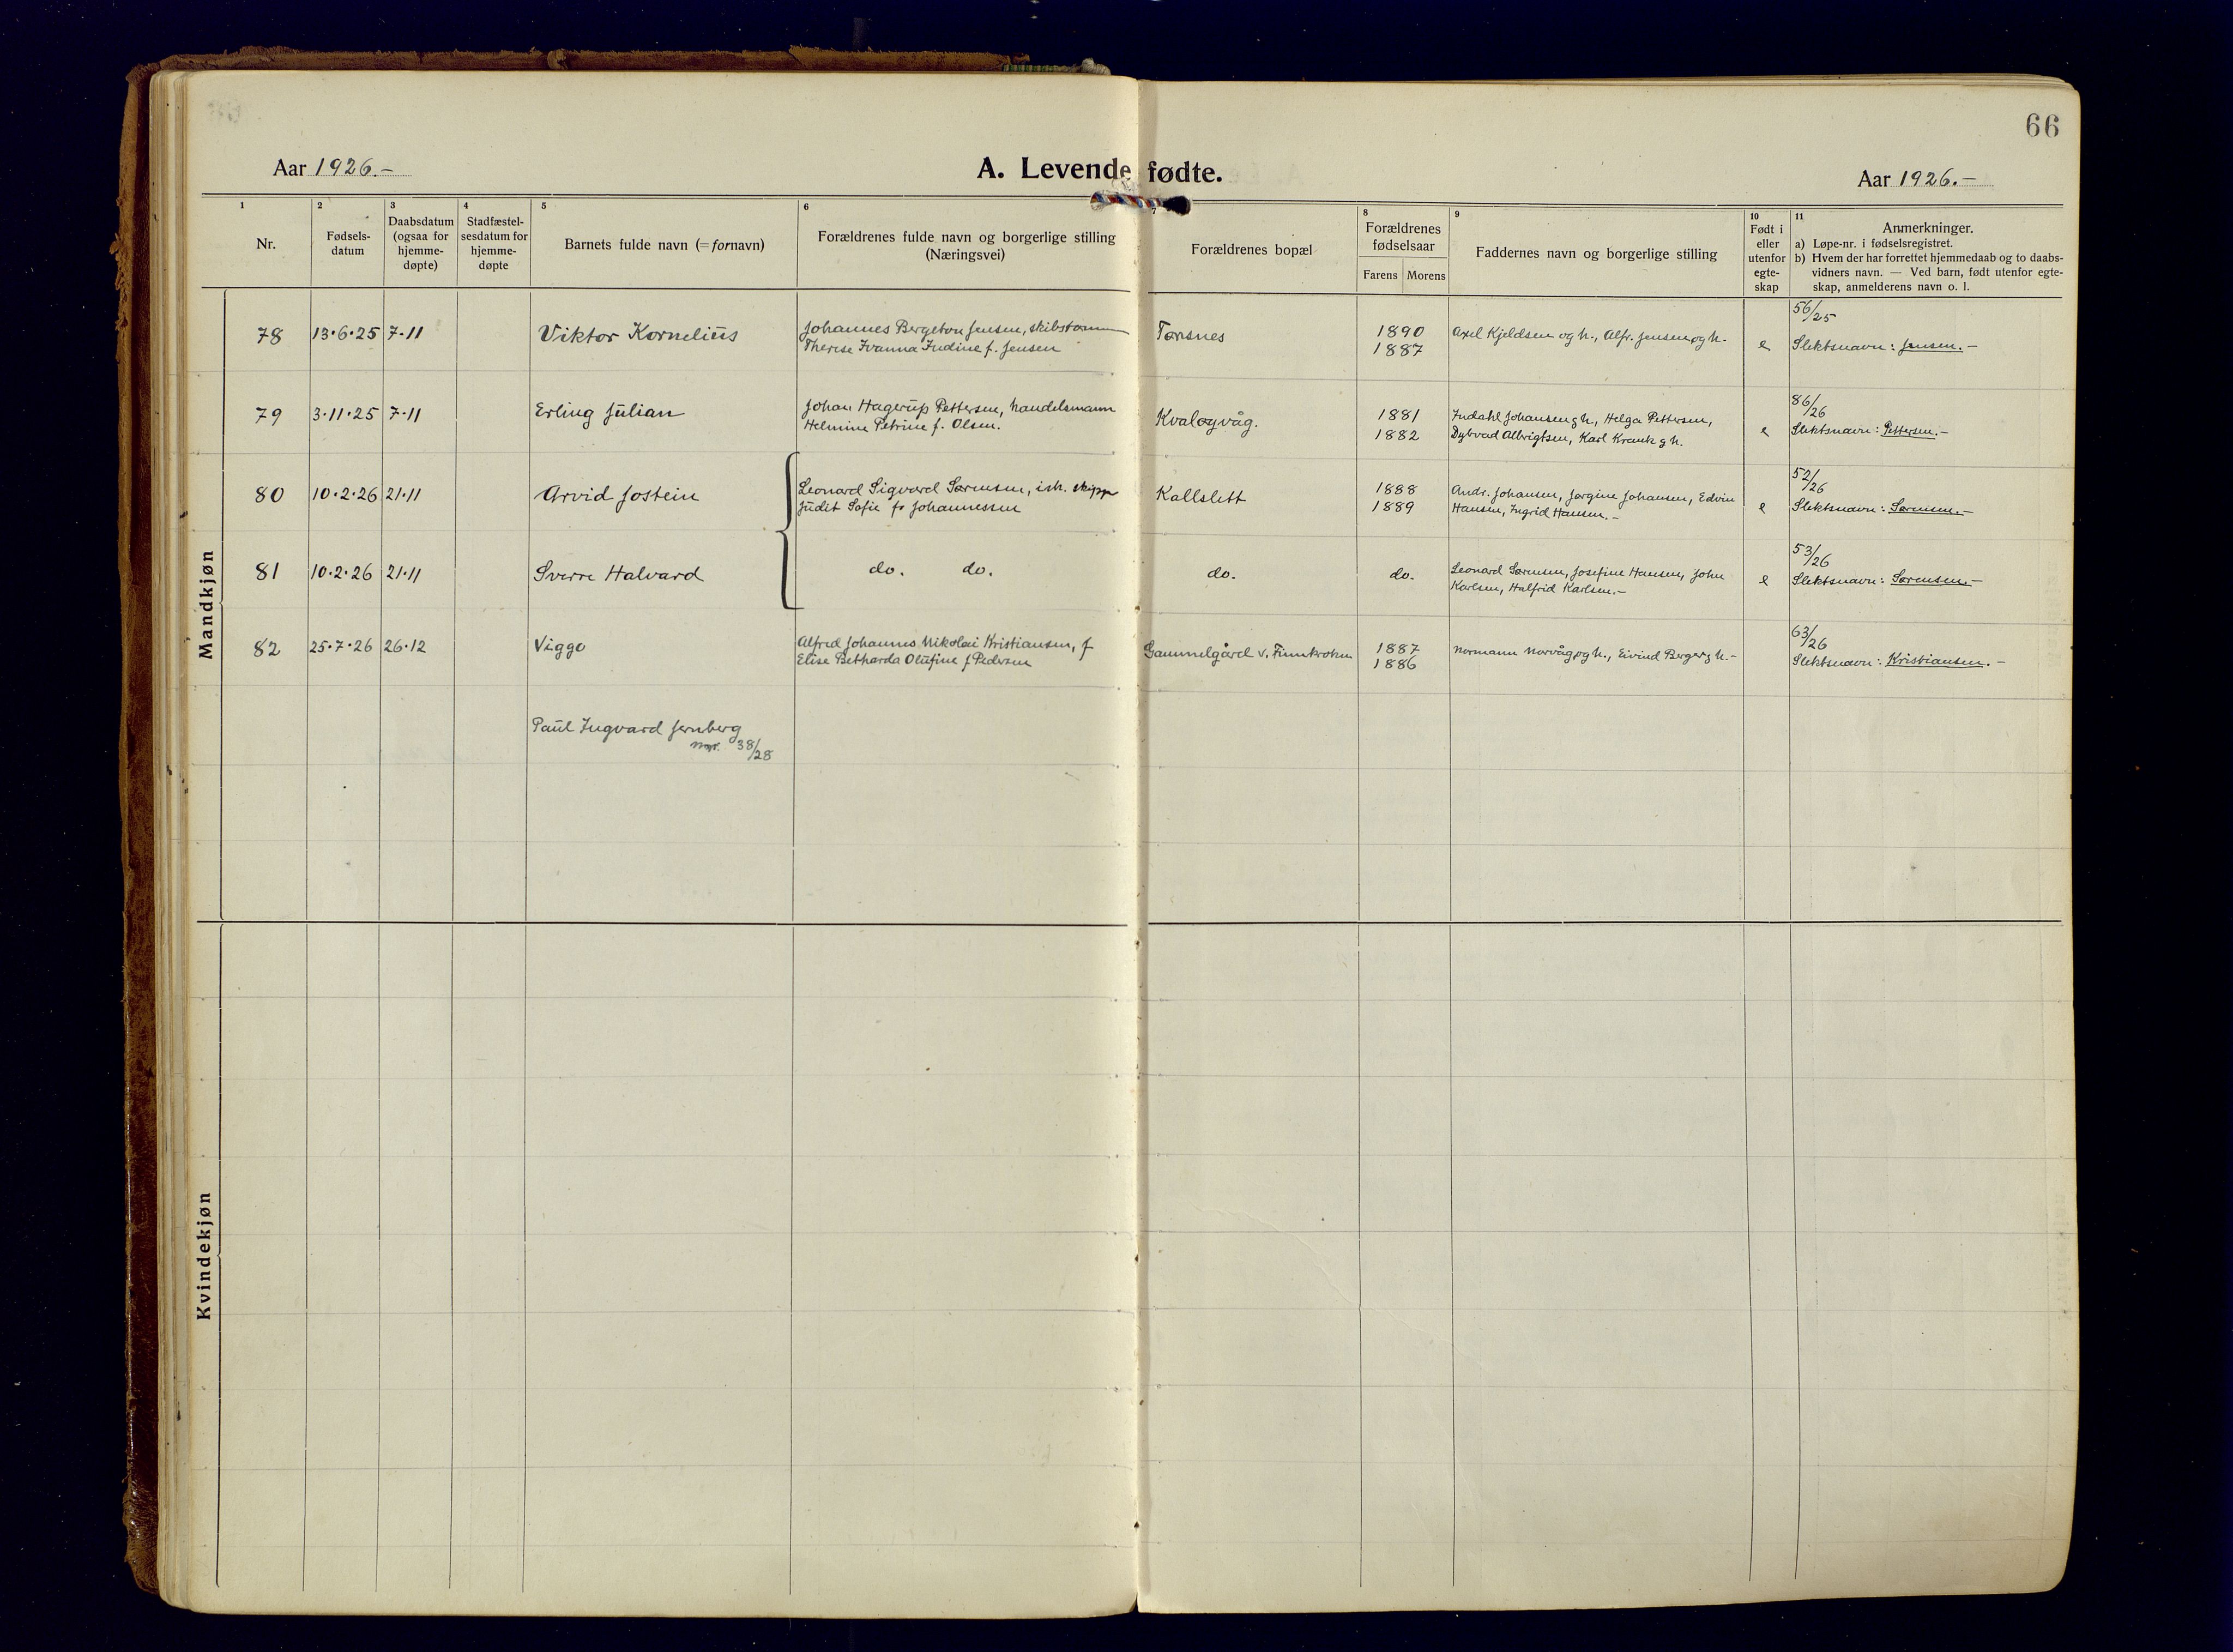 66
Aar 1926.-
A. Levende fødte.
Aar 1926.-
1 2 3 4 5 6 7 8 9 10 11
Nr.
Fødsels-
datum
Daabsdatum
(ogsaa for
hjemme-
døpte)
Stadfæstel-
sesdatum for
hjemme-
døpte
Barnets fulde navn (= fornavn)
Forældrenes fulde navn og borgerlige stilling
(Næringsvei)
Forældrenes bopæl
Forældrenes
fødselsaar
Farens Morens
Faddernes navn og borgerlige stilling
Født i
eller
utenfor
egte-
skap
Anmerkninger.
a) Løpe-nr. i fødselsregistret.
b) Hvem der har forrettet hjemmedaab og to daabs-
vidners navn. — Ved barn, født utenfor egte-
skap, anmelderens navn o. l.
Mandkjøn
78 13.6.25 7.11 Viktor Kornelius
Johannes Bergeton Jensen, skibstømm
Therese Ivanna Indine f. Jensen
Torsnes
1890
1887
Axel Kjeldsen og h., Alfr. Jensen og h.
e
56/25
Slektsnavn: Jensen.-
79 3.11.25 7.11 Erling Julian
Johan Hagerup Pettersen, handelsmann
Helmine Petrine f. Olsen.
Kvaløyvåg.
1881
1882
Indahl Johansen g h., Helga Pettersen,
Dybvad Albrigtsen, Karl Krank g h.
e
86/26
Slektsnavn: Pettersen.-
80 10.2.26 21.11 Arvid Jostein
Leonard Sigvard Sørensen, ish. skipper
Judit Sofie f. Johannessen
Kallslett
1888
1889
Andr. Johansen, Jørgine Johansen, Edvin
Hansen, Ingrid Hansen.-
e
52/26
Slektsnavn: Sørensen.-
81 10.2.26 21.11 Sverre Halvard
do. do.
do.
do.
Leonard Sørensen, Josefine Hansen, John
Karlsen, Halfrid Karlsen.-
e
53/26
Slektsnavn: Sørensen-
82 25.7.26 26.12 Viggo
Alfred Johannes Nikolai Kristiansen, f
Elise Betharda Olufine f Pedersen
Gammelgård v. Finnkroken
1887
1886
Normann Norvåg og h., Eivind Berger g h.-
63/26
Slektsnavn: Kristiansen.-
Paul Ingvard Jernberg
38/28
Kvindekjøn